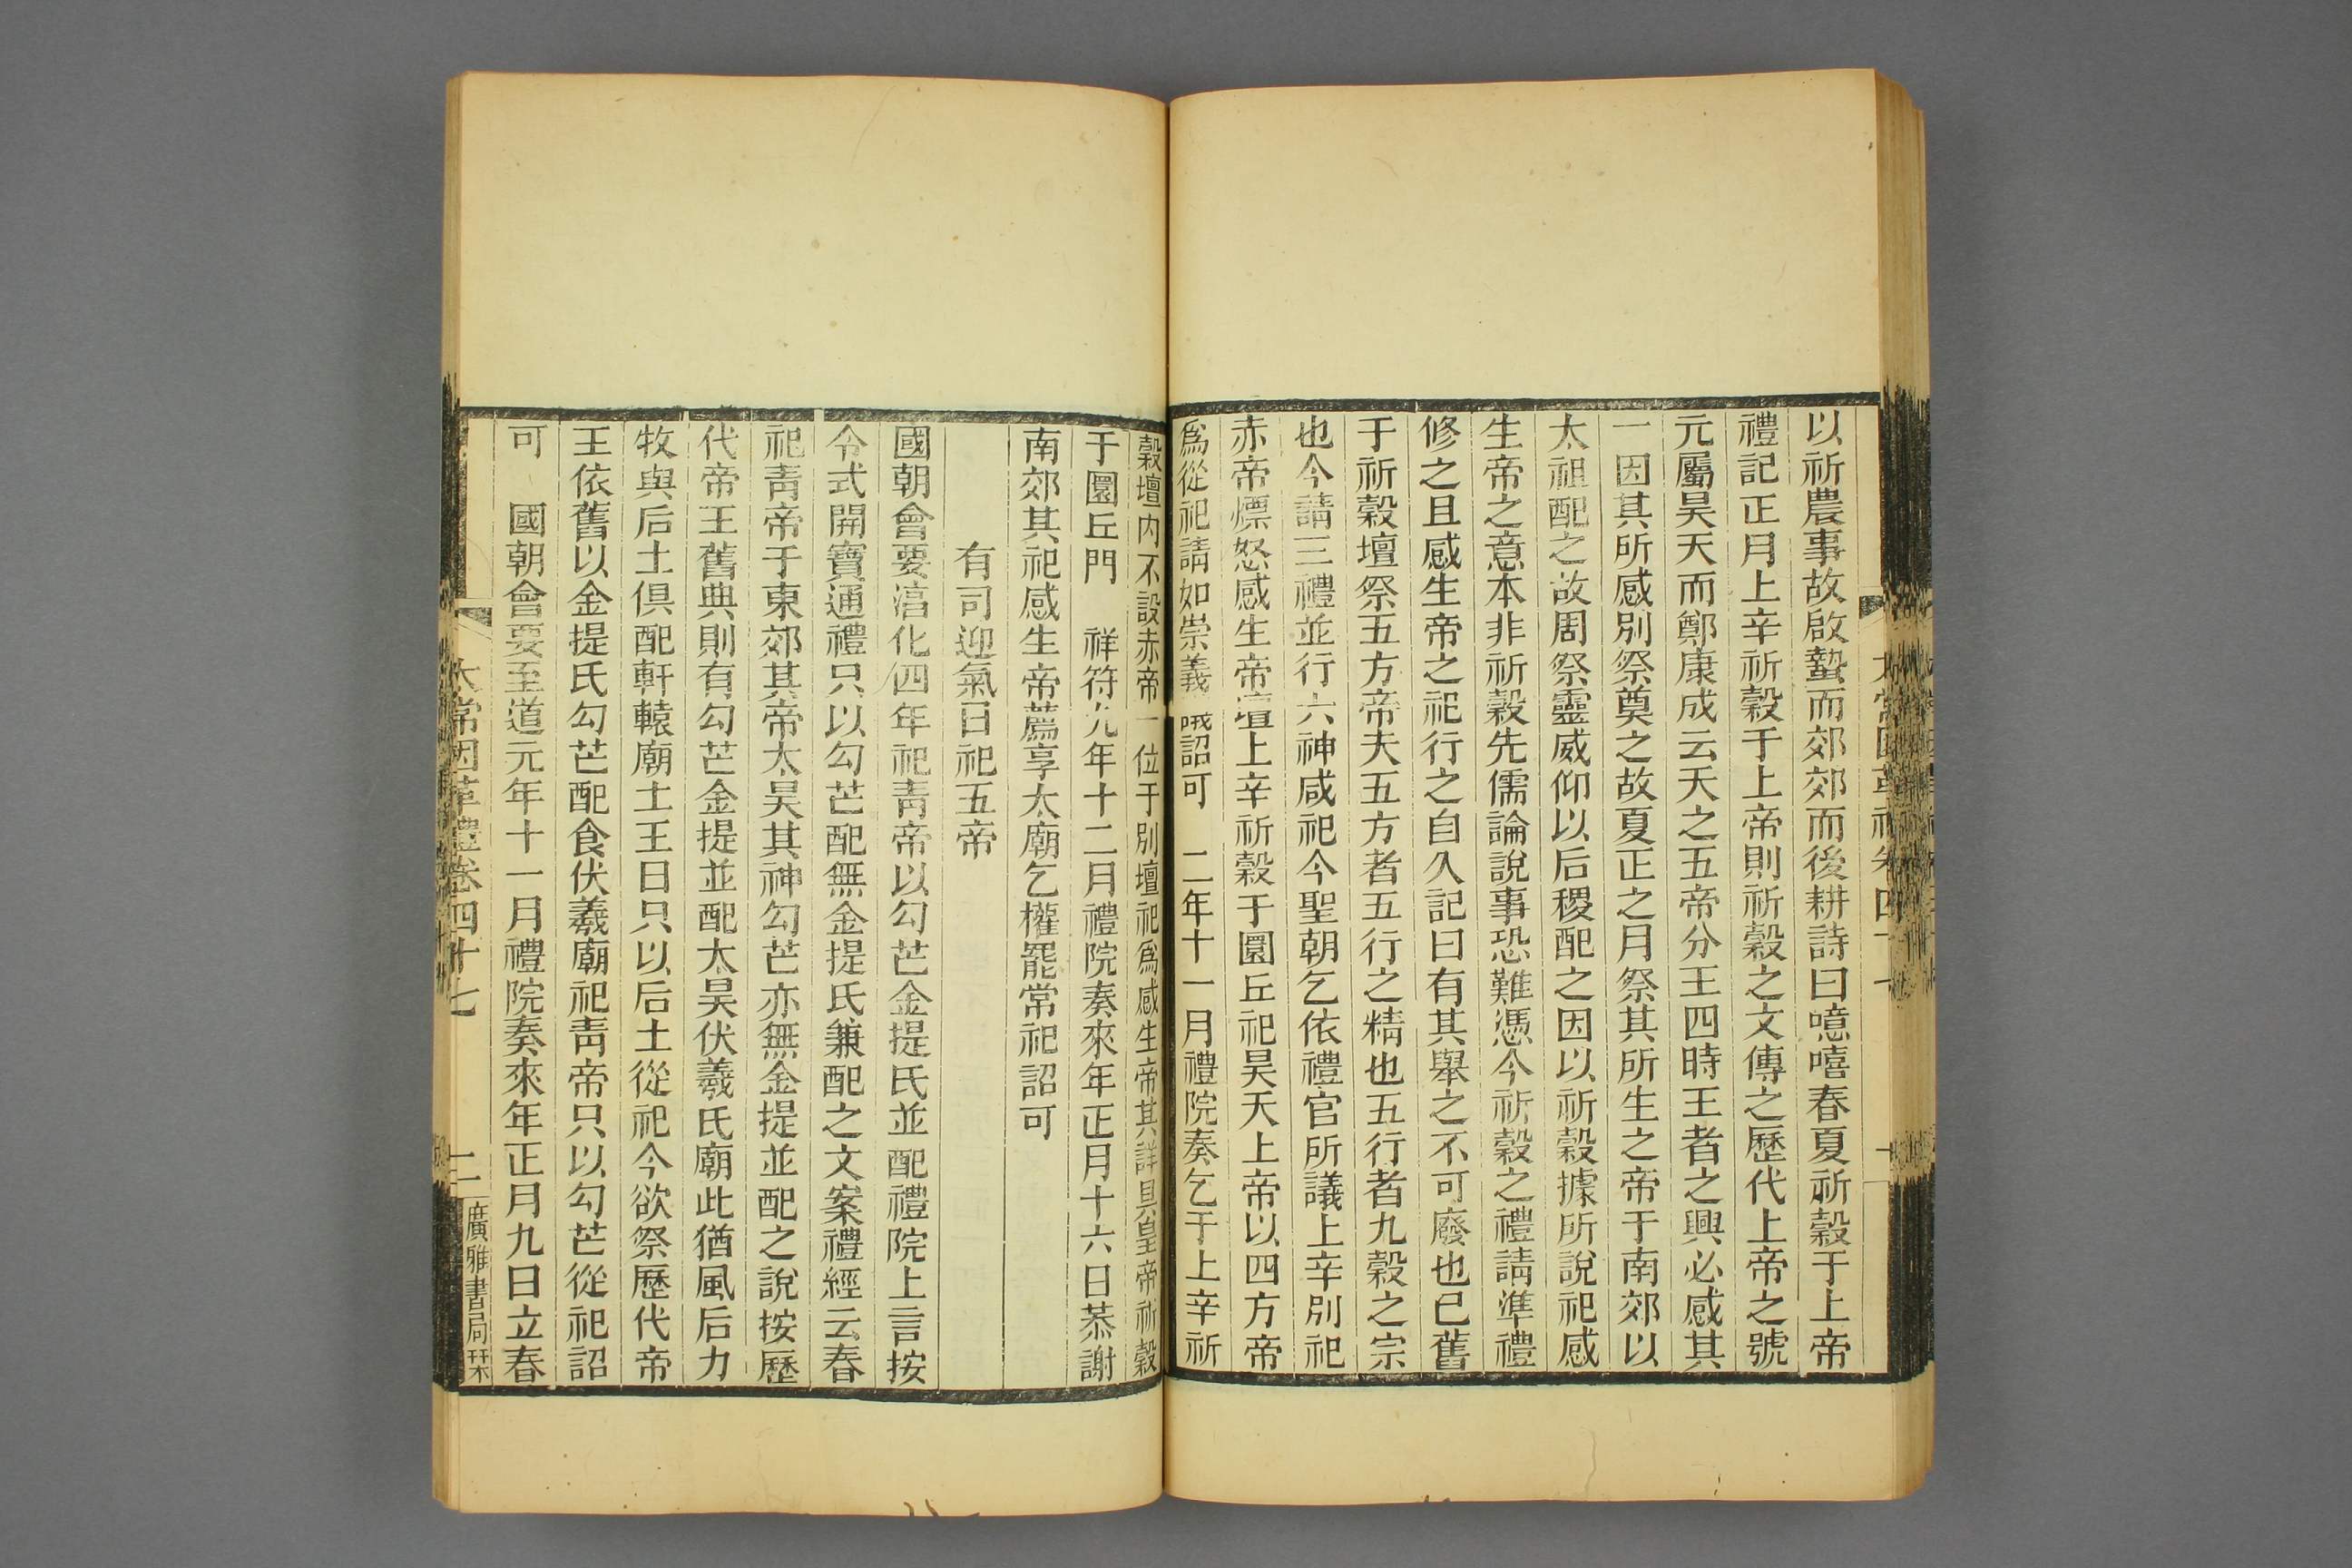 以祈農事故啟蟄而郊郊而後耕詩曰噫嘻春夏祈穀于上帝
禮記正月上辛祈穀于上帝則祈穀之文傳之歷代上帝之號
元屬昊天而鄭康成云天之五帝分王四時王者之興必感其
一因其所感別祭奠之故夏正之月祭其所生之帝于南郊以
太祖配之故周祭靈威仰以后稷配之因以祈穀據所說祀感
生帝之意本非祈穀先儒論說事恐難憑今祈穀之禮請準禮
修之且感生帝之祀行之自久記曰有其舉之不可廢也已舊
于祈穀壇祭五方帝夫五方者五行之精也五行者九穀之宗
也今請三禮並行六神咸祀今聖朝乞依禮官所議上辛別祀
赤帝熛怒感生帝壇上辛祈穀于圜丘祀昊天上帝以四方帝
為從祀請如崇義 詔可 二年十一月禮院奏乞于上辛祈
穀壇內不設赤帝一位于別壇祀為感生帝其詳具皇帝祈穀
于圜丘門 祥符九年十二月禮院奏來年正月十六日恭謝
南郊其祀感生帝薦享太廟乞權罷常祀詔可
有司迎氣日祀五帝
國朝會要淳化四年祀青帝以勾芒金提氏並配禮院上言按
令式開寶通禮只以勾芒配無金提氏兼配之文案禮經云春
祀青帝于東郊其帝太昊其神勾芒亦無金提並配之說按歷
代帝王舊典則有勾芒金提並配太昊伏羲氏廟此猶風后力
牧與后土俱配軒轅廟土王日只以后土從祀今欲祭歷代帝
王依舊以金提氏勾芒配食伏羲廟祀青帝只以勾芒從祀詔
可 國朝會要至道元年十一月禮院奏來年正月九日立春
太常因革禮卷四十七 二 廣雅書局栞